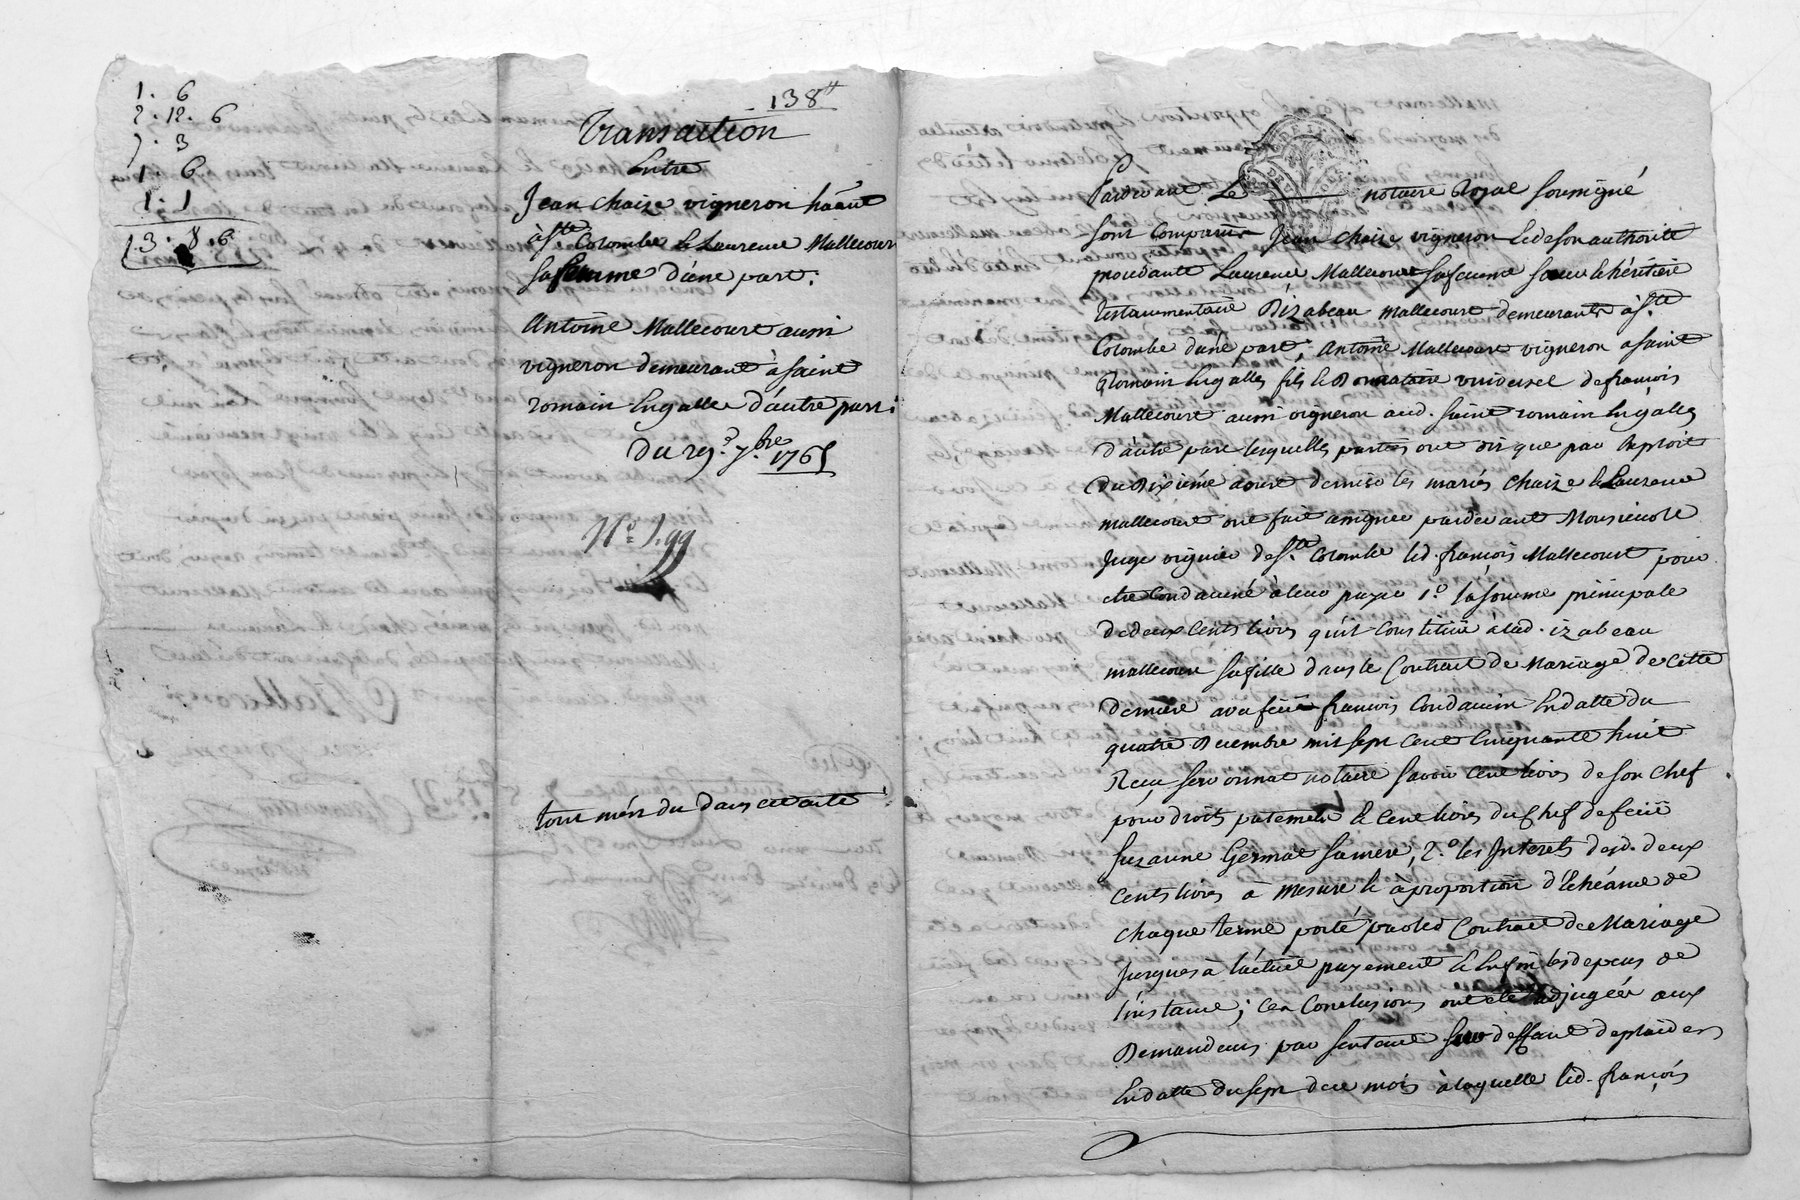 1 . 6
2 . 12 . 6
7 . 3
1 . 6
1 . 1
13 . 8 . 6
138#
Transaction
Entre
Jean chaize vigneron haant
à ste Colombe & Laurence Mallecour
sa femme d'une part.
Antoine Mallecourt aussi
vigneron demeurant à saint
romain En galle d'autre part.
du 29e 7bre 1765
No
tout mén du dans cet acte
Pardevant Le notaire Royal soussigné
sont Comparus Jean chaize vigneron & de son authorité
procedante Laurence Mallecourt sa femme soeur & héritiere
testamentaire D'izabeau mallecourt demeurants à ste
Colombe d'une part, Antoine Mallecourt vigneron a saint
Romain En galles fils & Donnataire universel de françois
Mallecourt aussi vigneron aud. saint romain En galles
d'autre part lesquelles parties ont dit que par Exploit
du Dixième aoust dernier les mariés Chaize & Laurence
mallecourt ont fait assigner pardevant Monsieur le
Juge viguier de ste Colombe led. françois Mallecourt pour
etre Condamné à leur payer 1o la somme principale
de deux Cents livres qu'il constitua à lad. izabeau
mallecourt sa fille dans le Contrat de Mariage de Cette
derniere avec feu françois Condamin En datte du
quatre Decembre mil sept Cent Cinquante huit
Receu notaire savoir Cent livres de son Chef
pour droits paternels & Cent livres du Chef de feüe
suzanne Germat sa mere, 2o les Interets desd. deux
Cents livres à mesure & à proportion d'Echéance de
chaque terme porté par led Contrat de Mariage
Jusques à l'actuel payement & Enfin les depens de
l'instance ; Ces Conclusions ont été adjugées aux
Demandeurs par sentence sur deffaut de plaider
En datte du sept de ce mois à laquelle led. françois